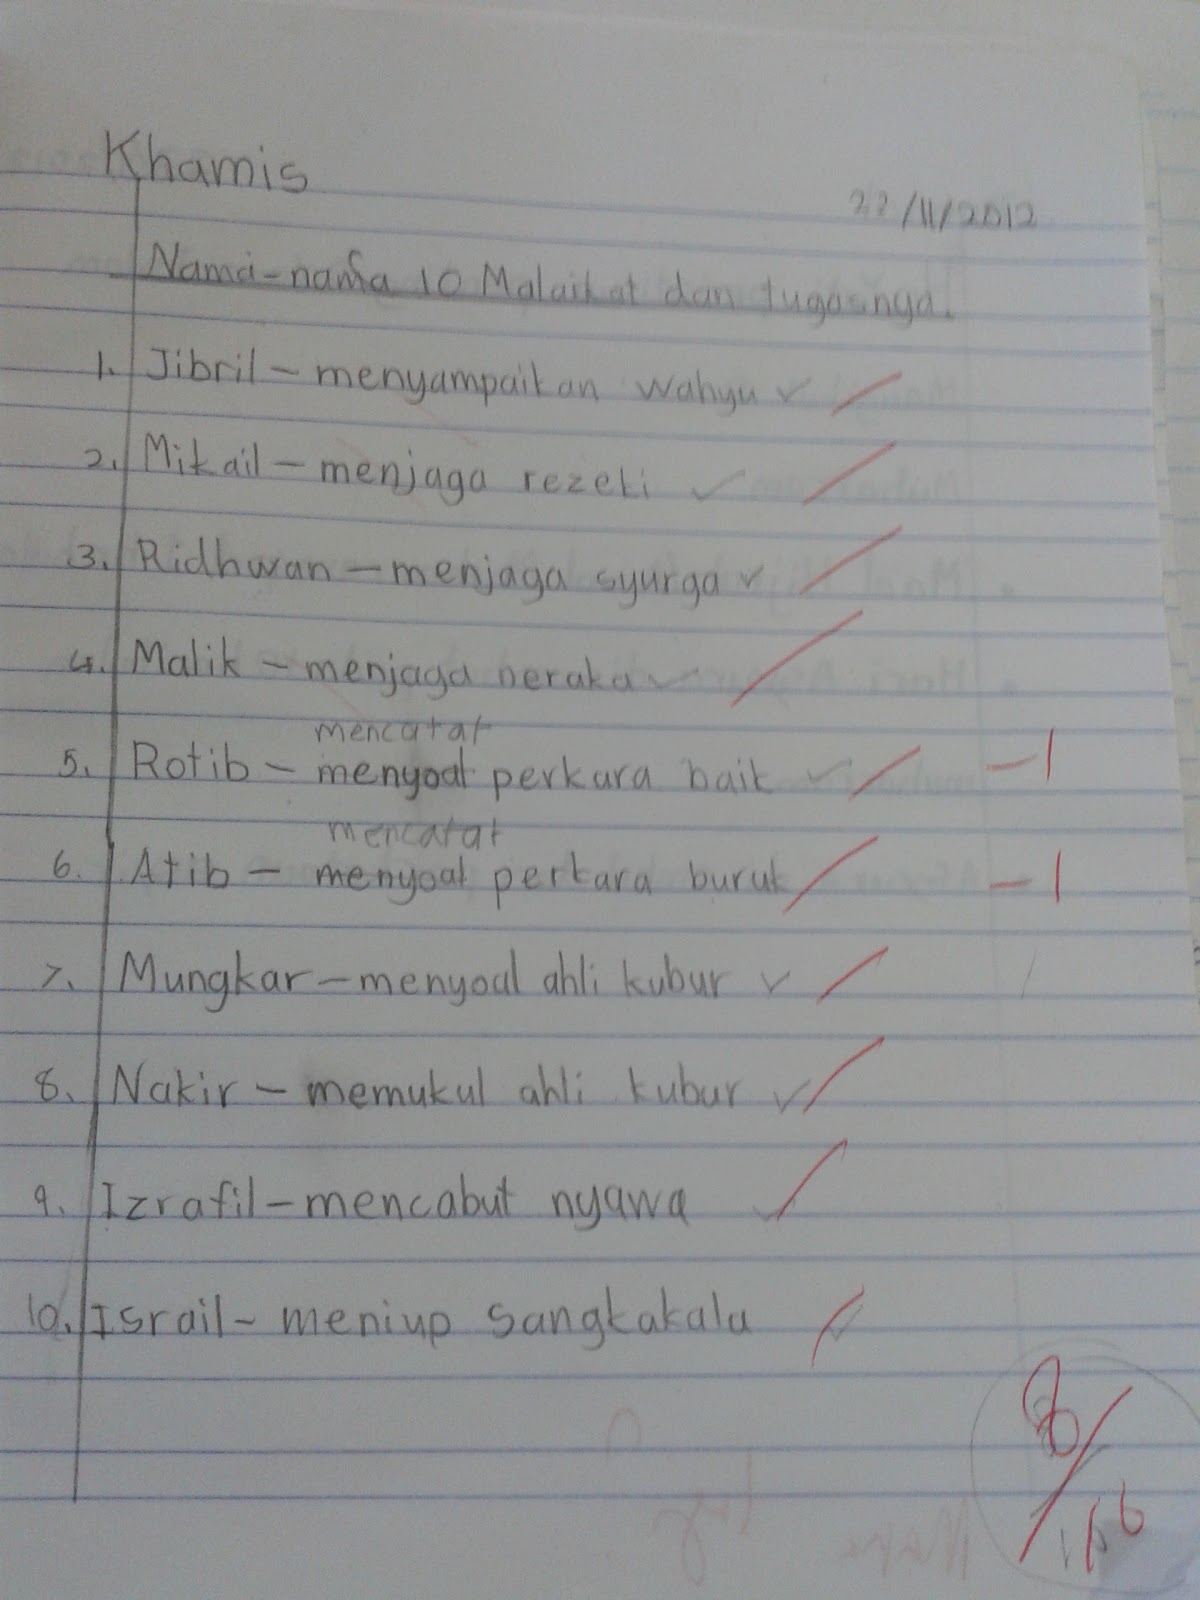 Khamis
22/11/2012
Nama-nama 10 Malaikat dan tugasnya.
1. Jibril - menyampaikan wahyu
2. Mikail - menjaga rezeki
3. Ridhwan - menjaga syurga
4. Malik - menjaga neraka
mencatat
5. Rotib - menyoal perkara baik -1
mencatat
6. Atib - menyoal perkara buruk -1
7. Mungkar - menyoal ahli kubur
8. Nakir - memukul ahli kubur
9. Izrafil - mencabut nyawa
10. Israil - meniup sangkakala
8/